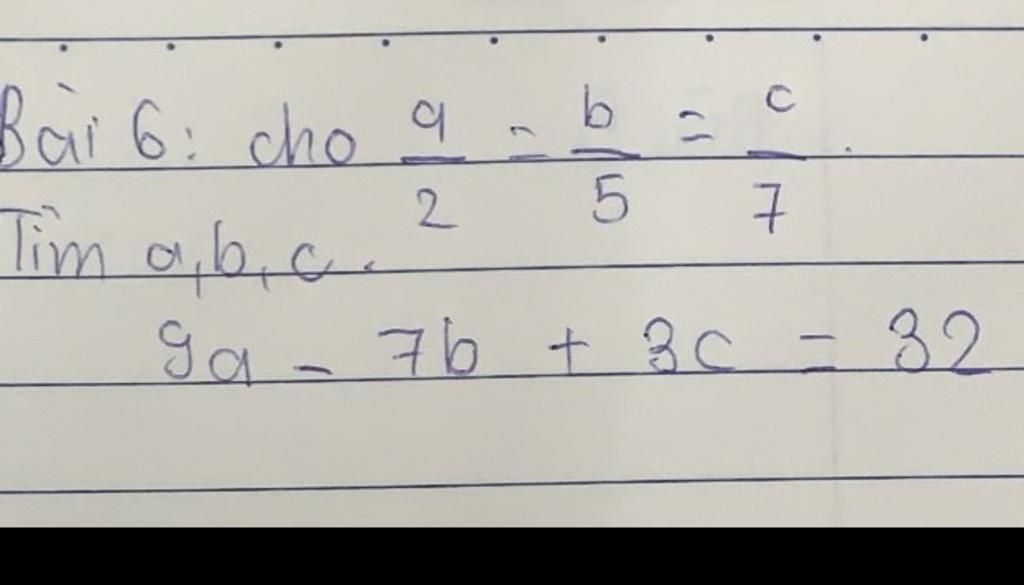 Bài 6: cho a/2 = b/5 = c/7.
Tìm a,b,c.
9a - 7b + 3c = 32